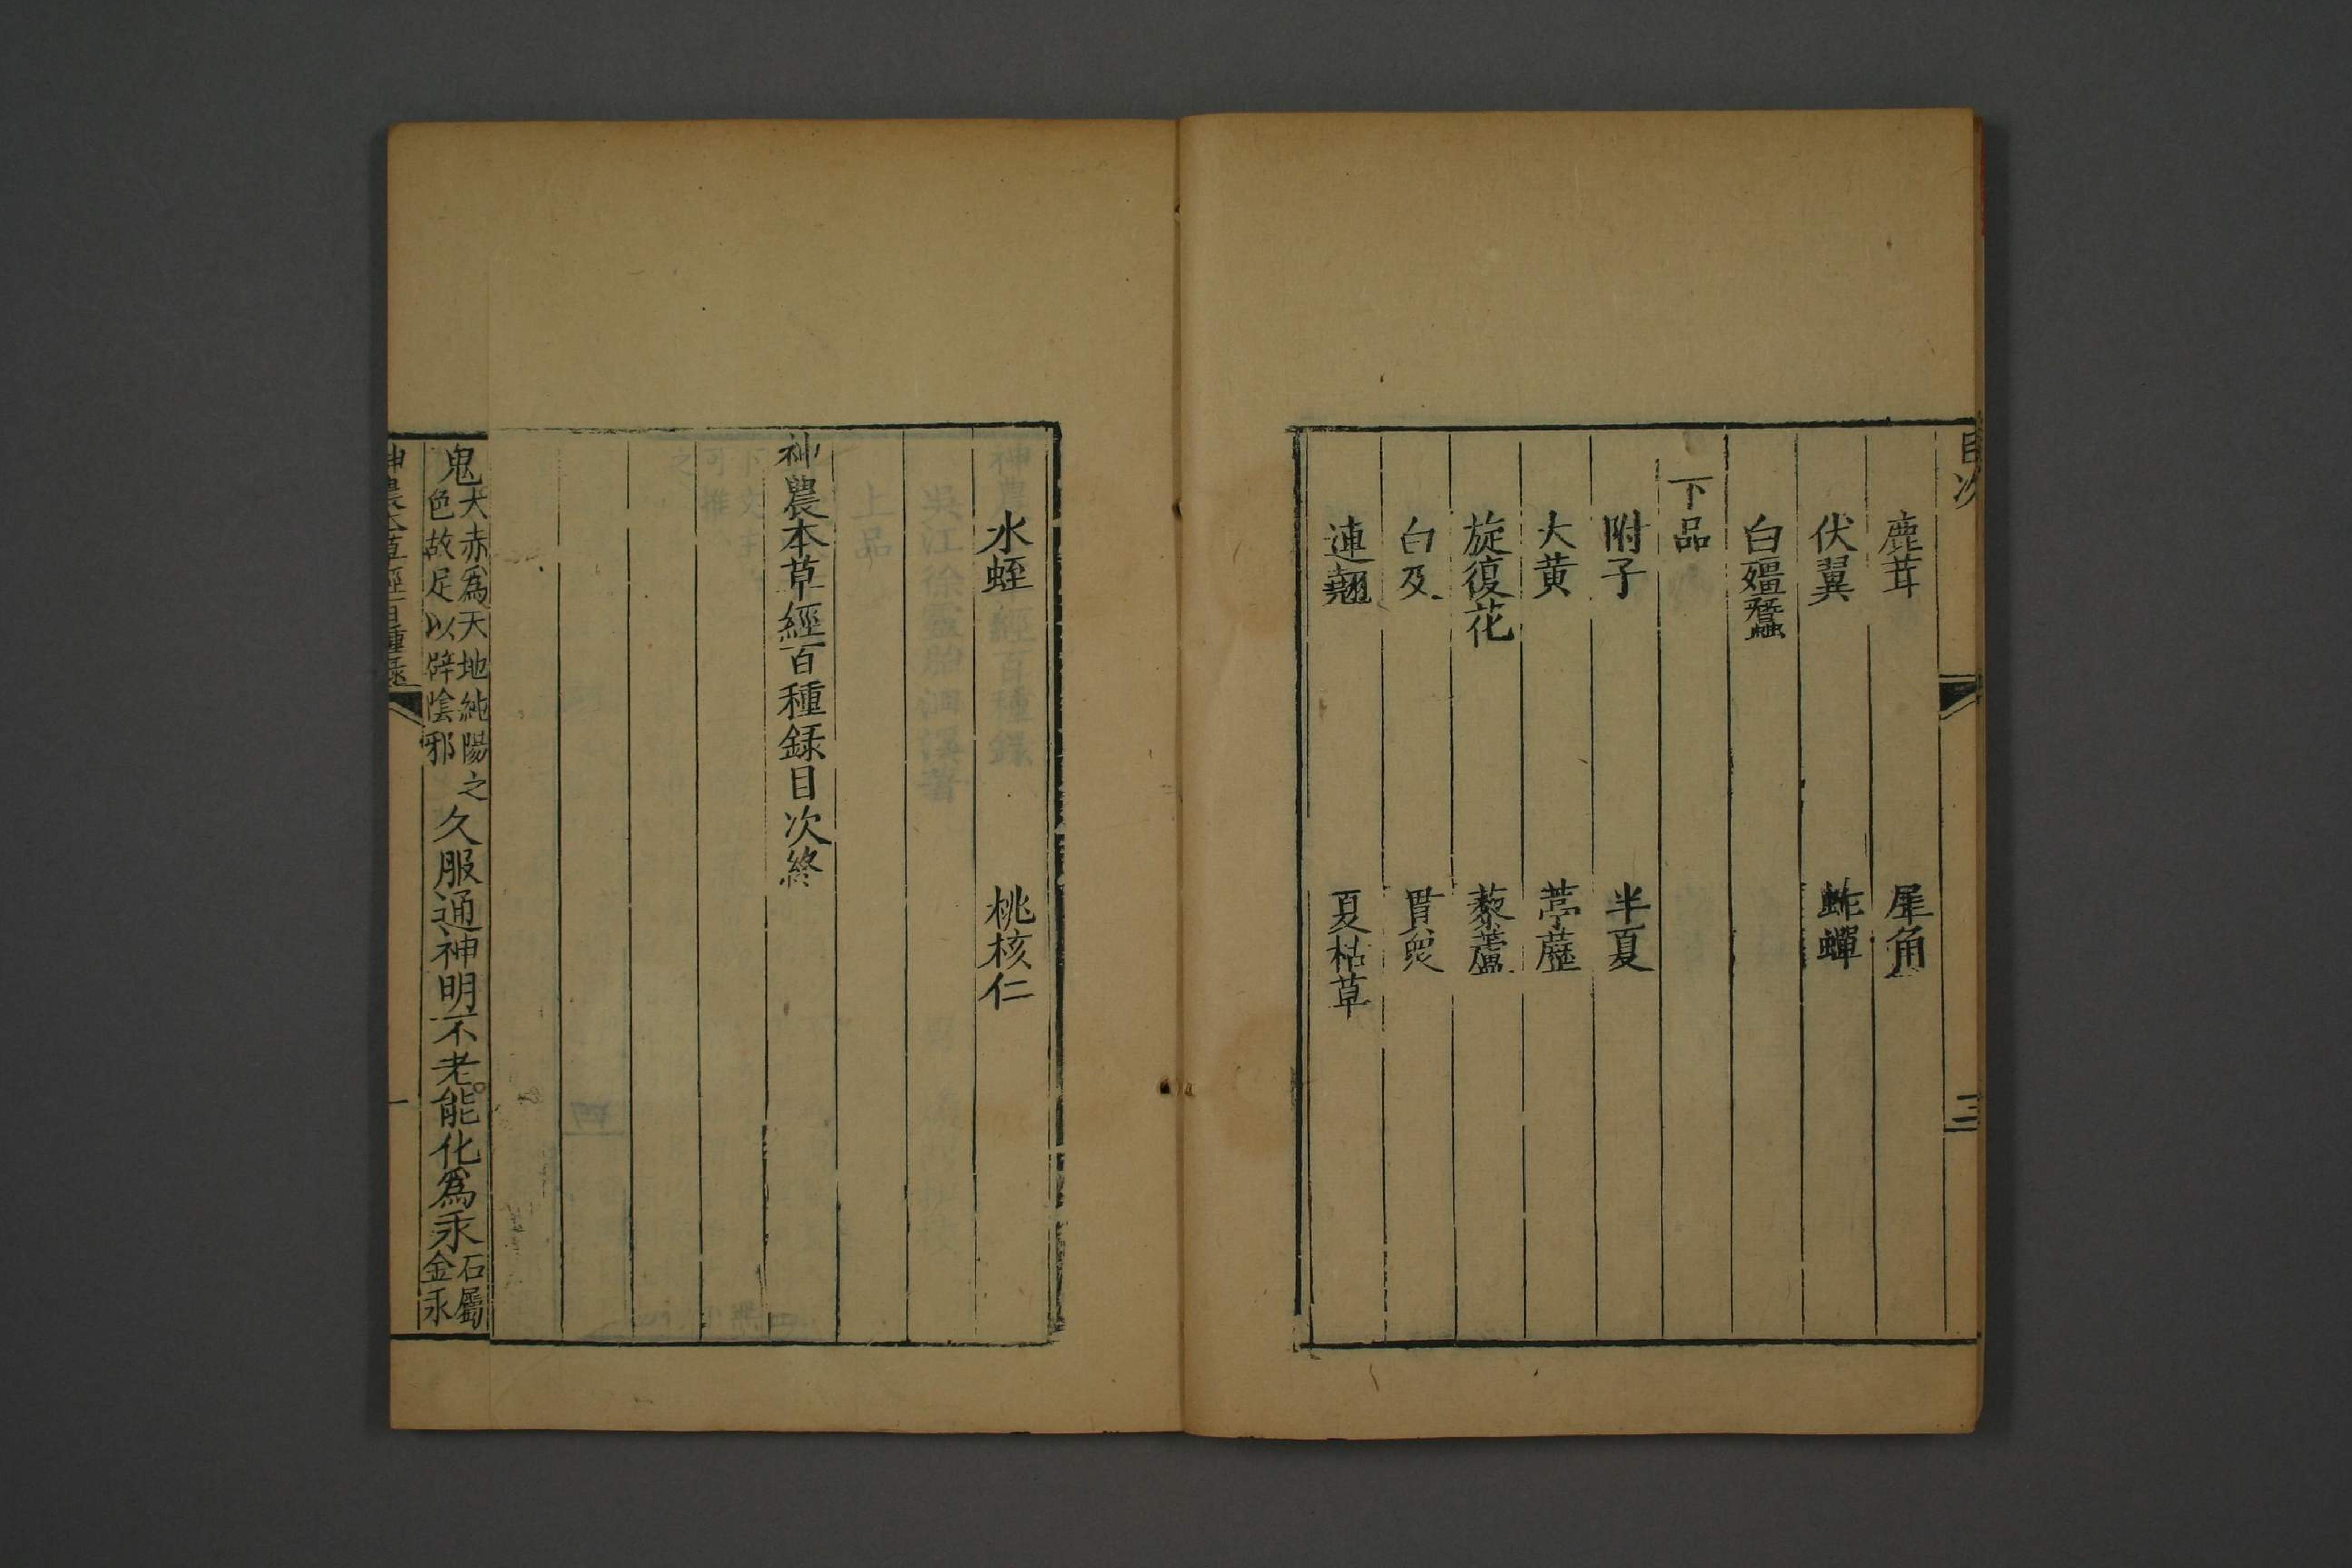 目次
三
鹿茸　犀角
伏翼　蚱蟬
白殭蠶
下品
附子　半夏
大黄　葶藶
旋復花　藜蘆
白及　貫衆
連翹　夏枯草
水蛭　桃核仁
神農本草經百種録目次終
鬼
大赤爲天地純陽之
色故足以辟陰邪
久服通神明不老能化爲汞
石屬
金汞
神農本草經百種錄
一